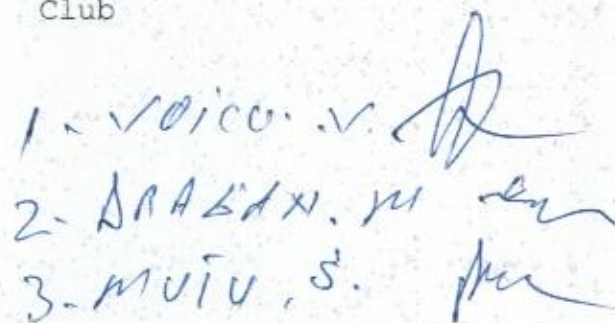 Club
1. VOICU. V.
2. DRAGAN. M
3. MUTU. S.